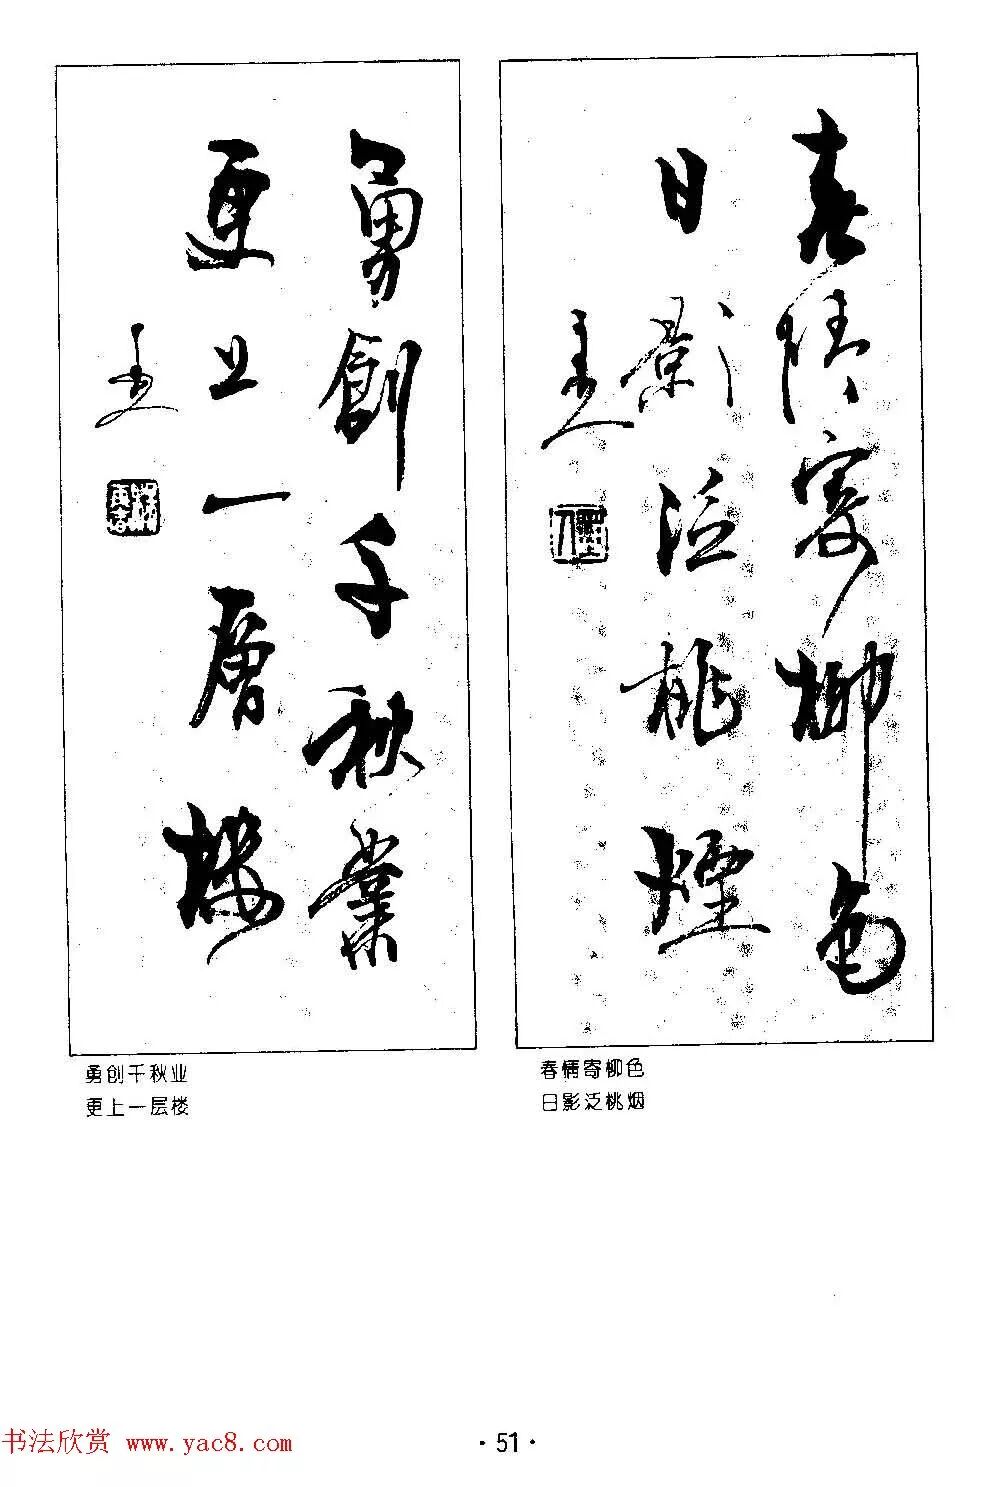 春情寄柳色
日影泛桃煙
春情寄柳色
日影泛桃烟
勇創千秋業
更上一層樓
勇创千秋业
更上一层楼
·51·
书法欣赏 www.yac8.com